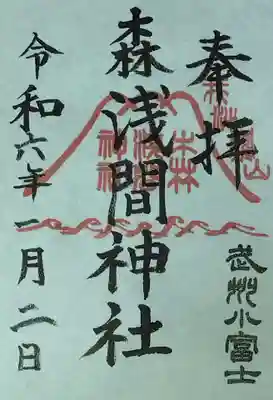 奉拝
武州小富士
森浅間神社
令和六年一月二日